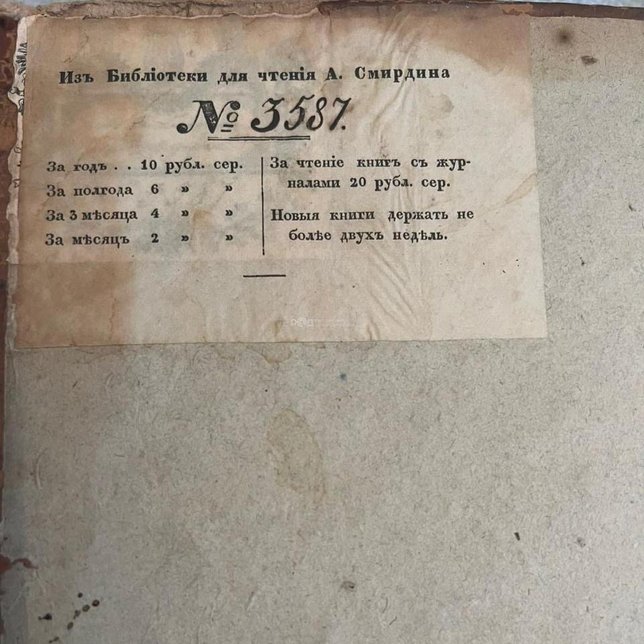 Изъ Библіотеки для чтенія А. Смирдина
№ 3587.
За годъ . . 10 рубл. сер.
За полгода 6 » »
За 3 мѣсяца 4 » »
За мѣсяцъ 2 » »
За чтеніе книгъ съ жур-
налами 20 рубл. сер.
Новыя книги держать не
болѣе двухъ недѣль.